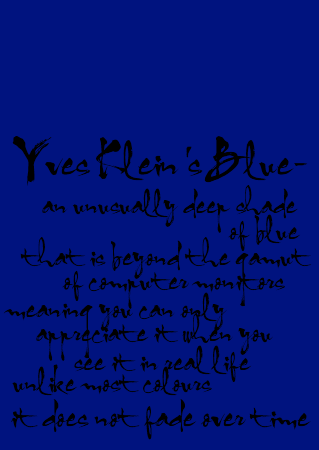 Yves Klein's Blue-
an unusually deep shade
of blue
that is beyond the gamut
of computer monitors
meaning you can only
appreciate it when you
see it in real life
unlike most colours
it does not fade over time